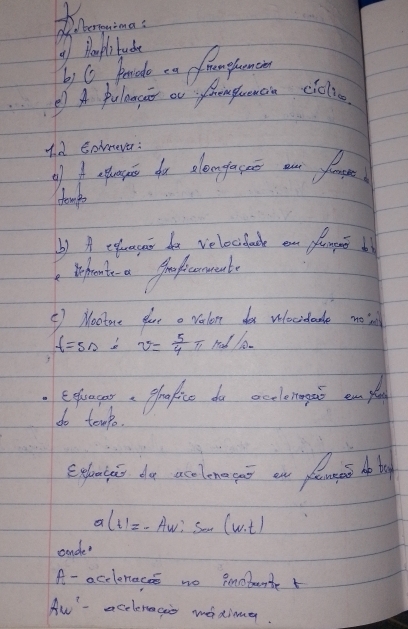 Determina:
a) Amplitude
b) O Periodo e a frequencia
c) A Pulsação ou frenquencia ciclica.
1.2 Escreva:
a) A equação da elongação em função do
tempo
b) A equação da velocidade em função do
e represente-a graficamente
c) Mostre que o valor da velocidade no
t=5s é v= 5/4 π m/s.
• Equacao e grafico da aceleração em função
do tempo.
Equação da aceleração em função do tempo
a(t) = - Aw² sen (w.t)
onde:
A - aceleração no instante t
Aw² - aceleração máxima.